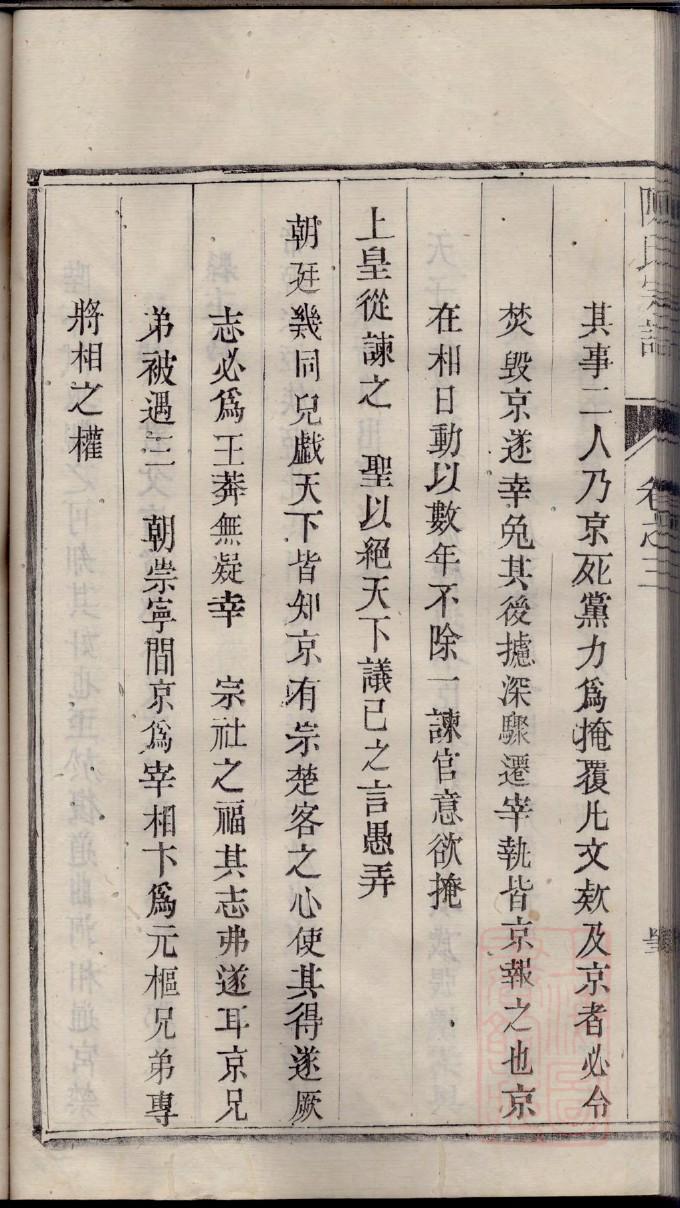 其事二人乃京死黨力爲掩覆凡文欵及京者必令
焚毀京遂幸免其後攄深驟遷宰執皆京報之也京
在相日動以數年不除一諫官意欲掩
上皇從諫之　聖以絕天下議己之言愚弄
朝廷幾同兒戲天下皆知京有崇楚客之心使其得遂厥
志必爲王莽無疑幸　宗社之福其志弗遂耳京兄
弟被遇三　朝崇寧間京爲宰相卞爲元樞兄弟專
將相之權
陳氏宗譜　卷之三